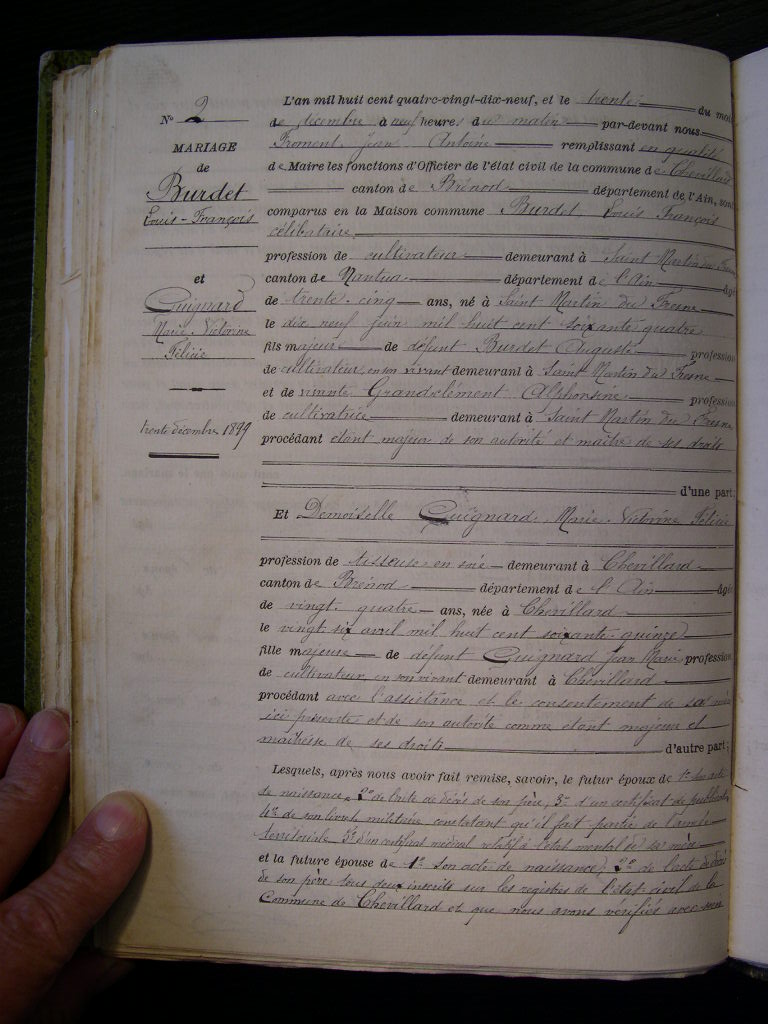 N° 2
MARIAGE
de
Burdet
Louis-François
et
Guignard
Marie Victorine
Félicie
trente décembre 1899
L'an mil huit cent quatre-vingt-dix-neuf, et le trente du mois
de décembre à neuf heures du matin par-devant nous
Froment Jean Antoine remplissant en qualité
de Maire les fonctions d'Officier de l'état civil de la commune de Chevillard
canton de Brénod département de l'Ain, sont
comparus en la Maison commune Burdet Louis François
célibataire
profession de cultivateur demeurant à Saint Martin du Fresne
canton de Nantua département de l'Ain âgé
de trente-cinq ans, né à Saint Martin du Fresne
le dix neuf juin mil huit cent soixante quatre
fils majeur de défunt Burdet Auguste profession
de cultivateur en son vivant demeurant à Saint Martin du Fresne
et de vivante Grandclément Alphonsine profession
de cultivatrice demeurant à Saint Martin du Fresne
procédant étant majeur de son autorité et maître de ses droits
d'une part;
Et Demoiselle Guignard Marie Victorine Félicie
profession de tisseuse en soie demeurant à Chevillard
canton de Brénod département de l'Ain âgée
de vingt-quatre ans, née à Chevillard
le vingt six avril mil huit cent soixante quinze
fille majeure de défunt Guignard Jean Marie profession
de cultivateur en son vivant demeurant à Chevillard
procédant avec l'assistance et le consentement de sa mère
ici présente et de son autorité comme étant majeure et
maîtresse de ses droits d'autre part;
Lesquels, après nous avoir fait remise, savoir, le futur époux de 1° son acte
de naissance, 2° de l'acte de décès de son père, 3° d'un certificat de publication
4° de son livret militaire constatant qu'il fait partie de l'armée
territoriale 5° d'un certificat médical relatif à l'état mental de sa mère
et la future épouse de 1° son acte de naissance, 2° de l'acte de décès
de son père tous deux inscrits sur les registres de l'état civil de la
Commune de Chevillard et que nous avons vérifiés avec soin